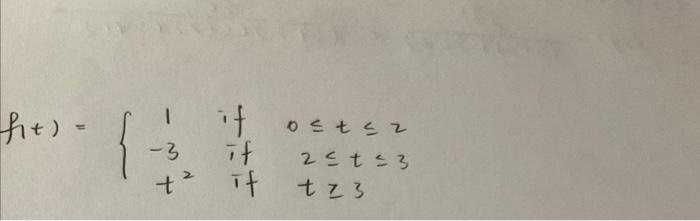 f(t) = { 1 if 0 ≤ t ≤ 2
-3 if 2 ≤ t ≤ 3
t² if t ≥ 3